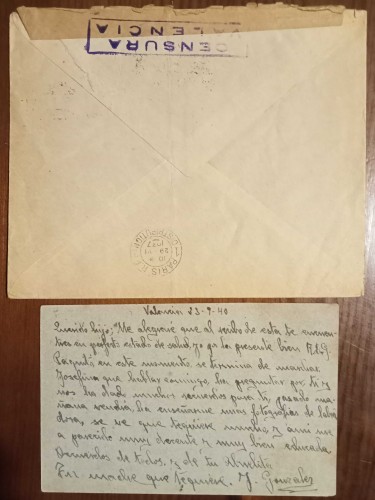 CENSURA
VALENCIA
PARIS
Valencia 23-9-40
Querido hijo; Me alegraré que al recibo de esta te encuen-
tres en perfecto estado de salud, yo por la presente bien A.D.G.
Paquito en este momento se termina de marchar
Josefina que hablar conmigo, ha preguntado por ti y
nos ha dado muchos recuerdos para ti, pasado ma-
ñana vendrá. Ha enseñarme unas fotografías de la
se ve que te quiere mucho y a mi me
a parecido muy decente y muy bien educada.
Recuerdos de todos, y de tu abuelita
Tu madre que te quiere. J. Gonzalez